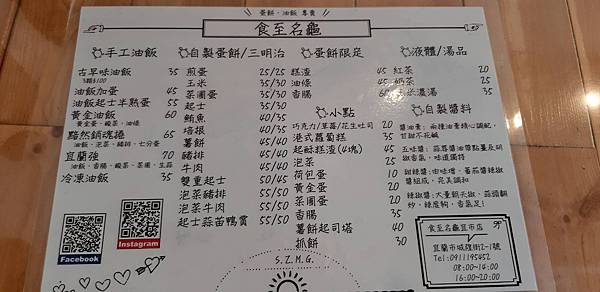 蛋餅、油飯 專賣
食至名龜
手工油飯
古早味油飯 35
3顆$100
油飯加蛋 45
油飯起士半熟蛋 55
黃金油飯 60
黃金蛋、酸菜、油條
黯然銷魂捲 65
油飯、泡菜、豬排、七分蛋
宜蘭強 70
油飯、香腸、酸菜、菜圃、生蒜
冷凍油飯 35
Facebook
Instagram
自製蛋餅/三明治
煎蛋 25/25
玉米 35/30
菜圃蛋 35/30
起士 35/30
鮪魚 40/35
培根 40/35
薯餅 40/35
豬排 45/40
牛肉 45/40
雙重起士 50/50
泡菜豬排 55/50
泡菜牛肉 55/50
起士蒜苗鴨賞 55/50
蛋餅限定
糕渣 45
油條 45
香腸 60
小點
巧克力/草莓/花生吐司 20
港式蘿蔔糕 35
起酥糕渣(4塊) 45
泡菜 25
荷包蛋 10
黃金蛋 20
菜圃蛋 20
香腸 35
薯餅起司塔 40
抓餅 30
液體/湯品
紅茶 20
奶茶 25
玉米濃湯 35
自製醬料
醬油膏:兩種油膏精心調配,
甘甜不死鹹
五味醬:蒜蓉醬油帶點薑及胡
椒香氣,味道獨特
甜辣醬:由味噌、番茄醬辣椒
醬組成,完美調和
辣椒醬:大量朝天椒、蒜頭翻
炒,辣度夠,香氣足!
食至名龜宜市店
宜蘭市城隍街2-1號
Tel:0911195452
08:00~14:00
16:00~20:00
S.Z.M.G.